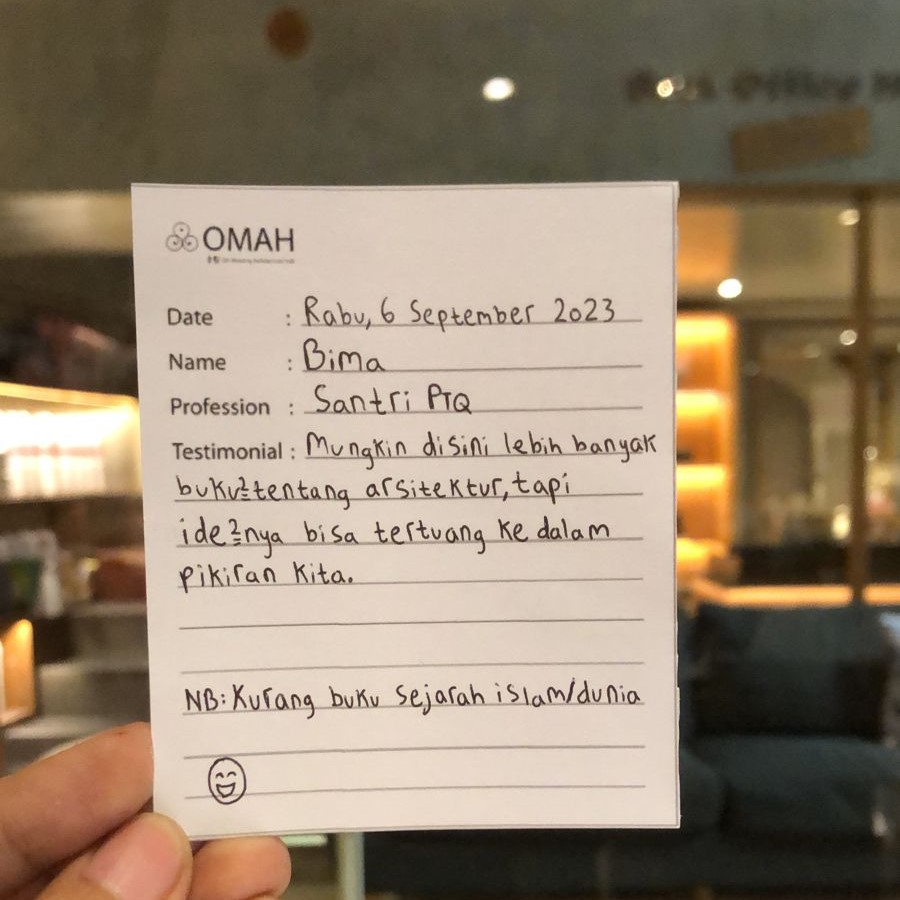 OMAH
Date : Rabu, 6 September 2023
Name : Bima
Profession : Santri PTQ
Testimonial : Mungkin disini lebih banyak
buku²tentang arsitektur, tapi
ide²nya bisa tertuang ke dalam
pikiran kita.
NB: Kurang buku sejarah islam/dunia